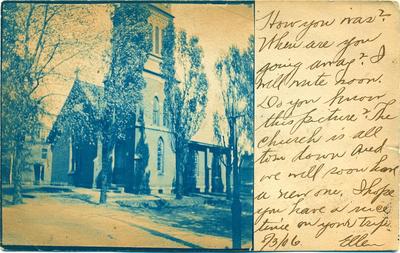 How you was?
When are you
going away? I
will write soon.
Do you know
this picture? The
church is all
torn down and
we will soon have
a new one. I hope
you have a nice
time on your trip.
8/3/06. Ellen